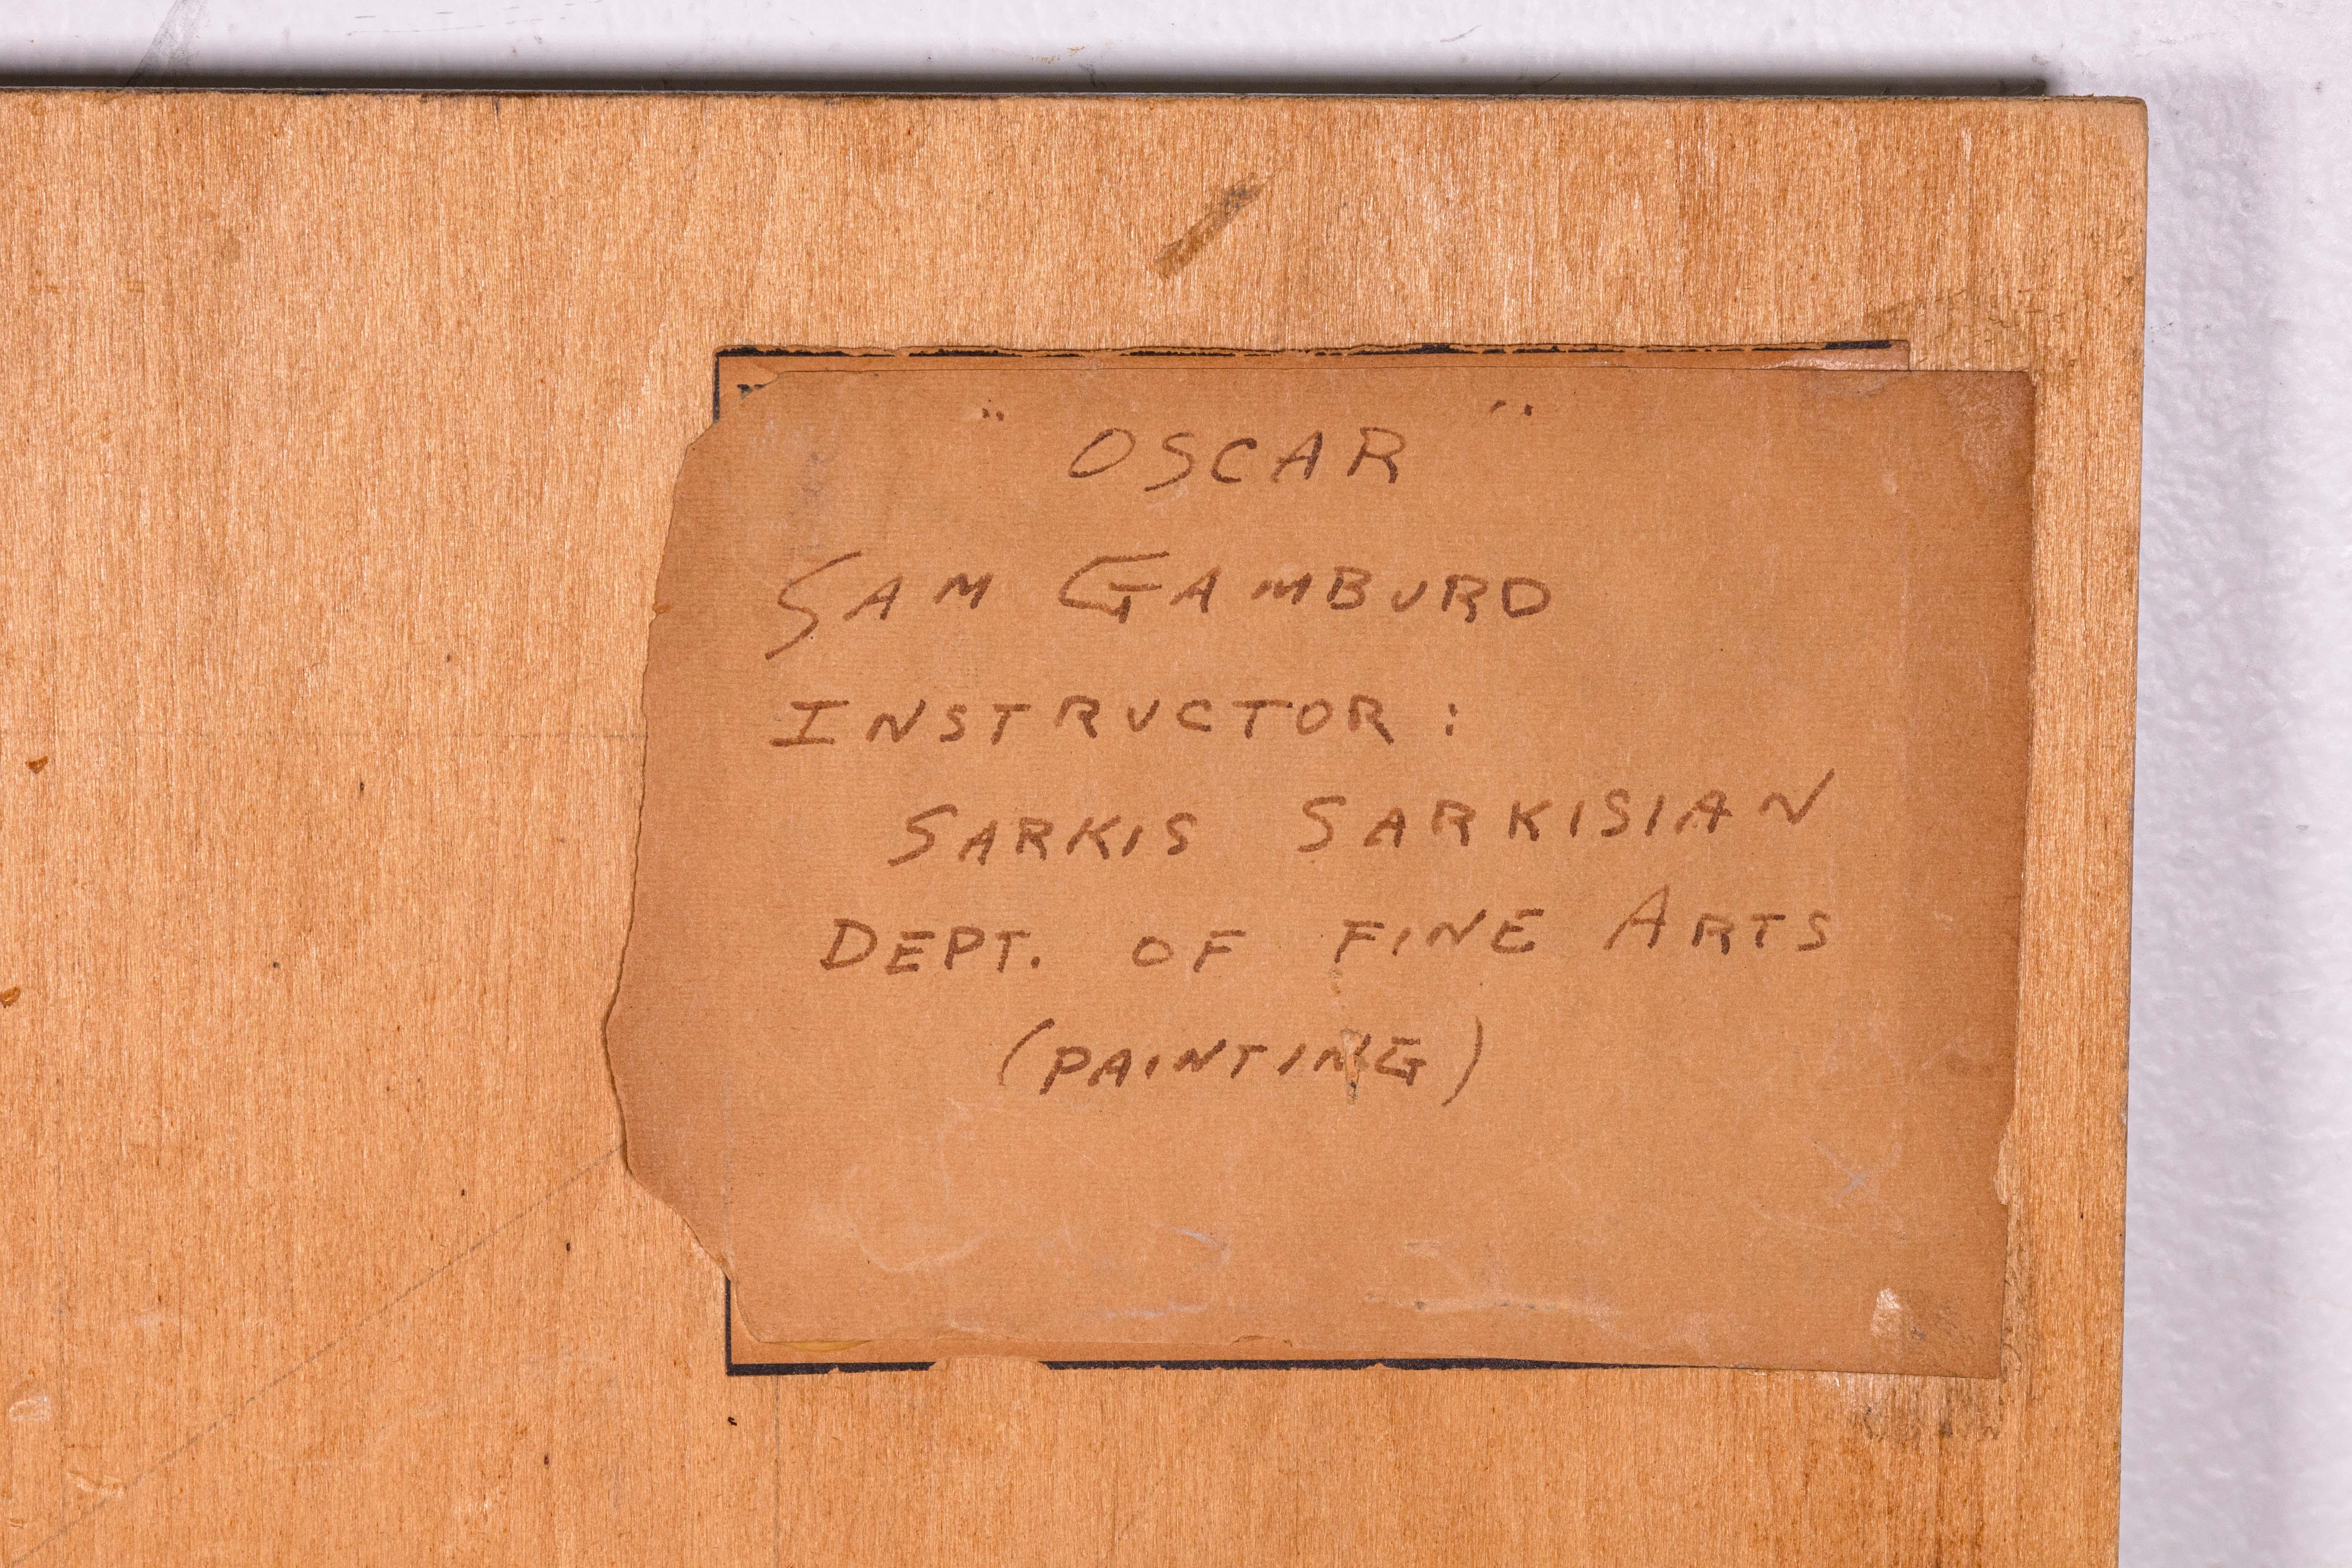 " OSCAR "
SAM GAMBURD
INSTRUCTOR :
SARKIS SARKISIAN
DEPT. OF FINE ARTS
(PAINTING)